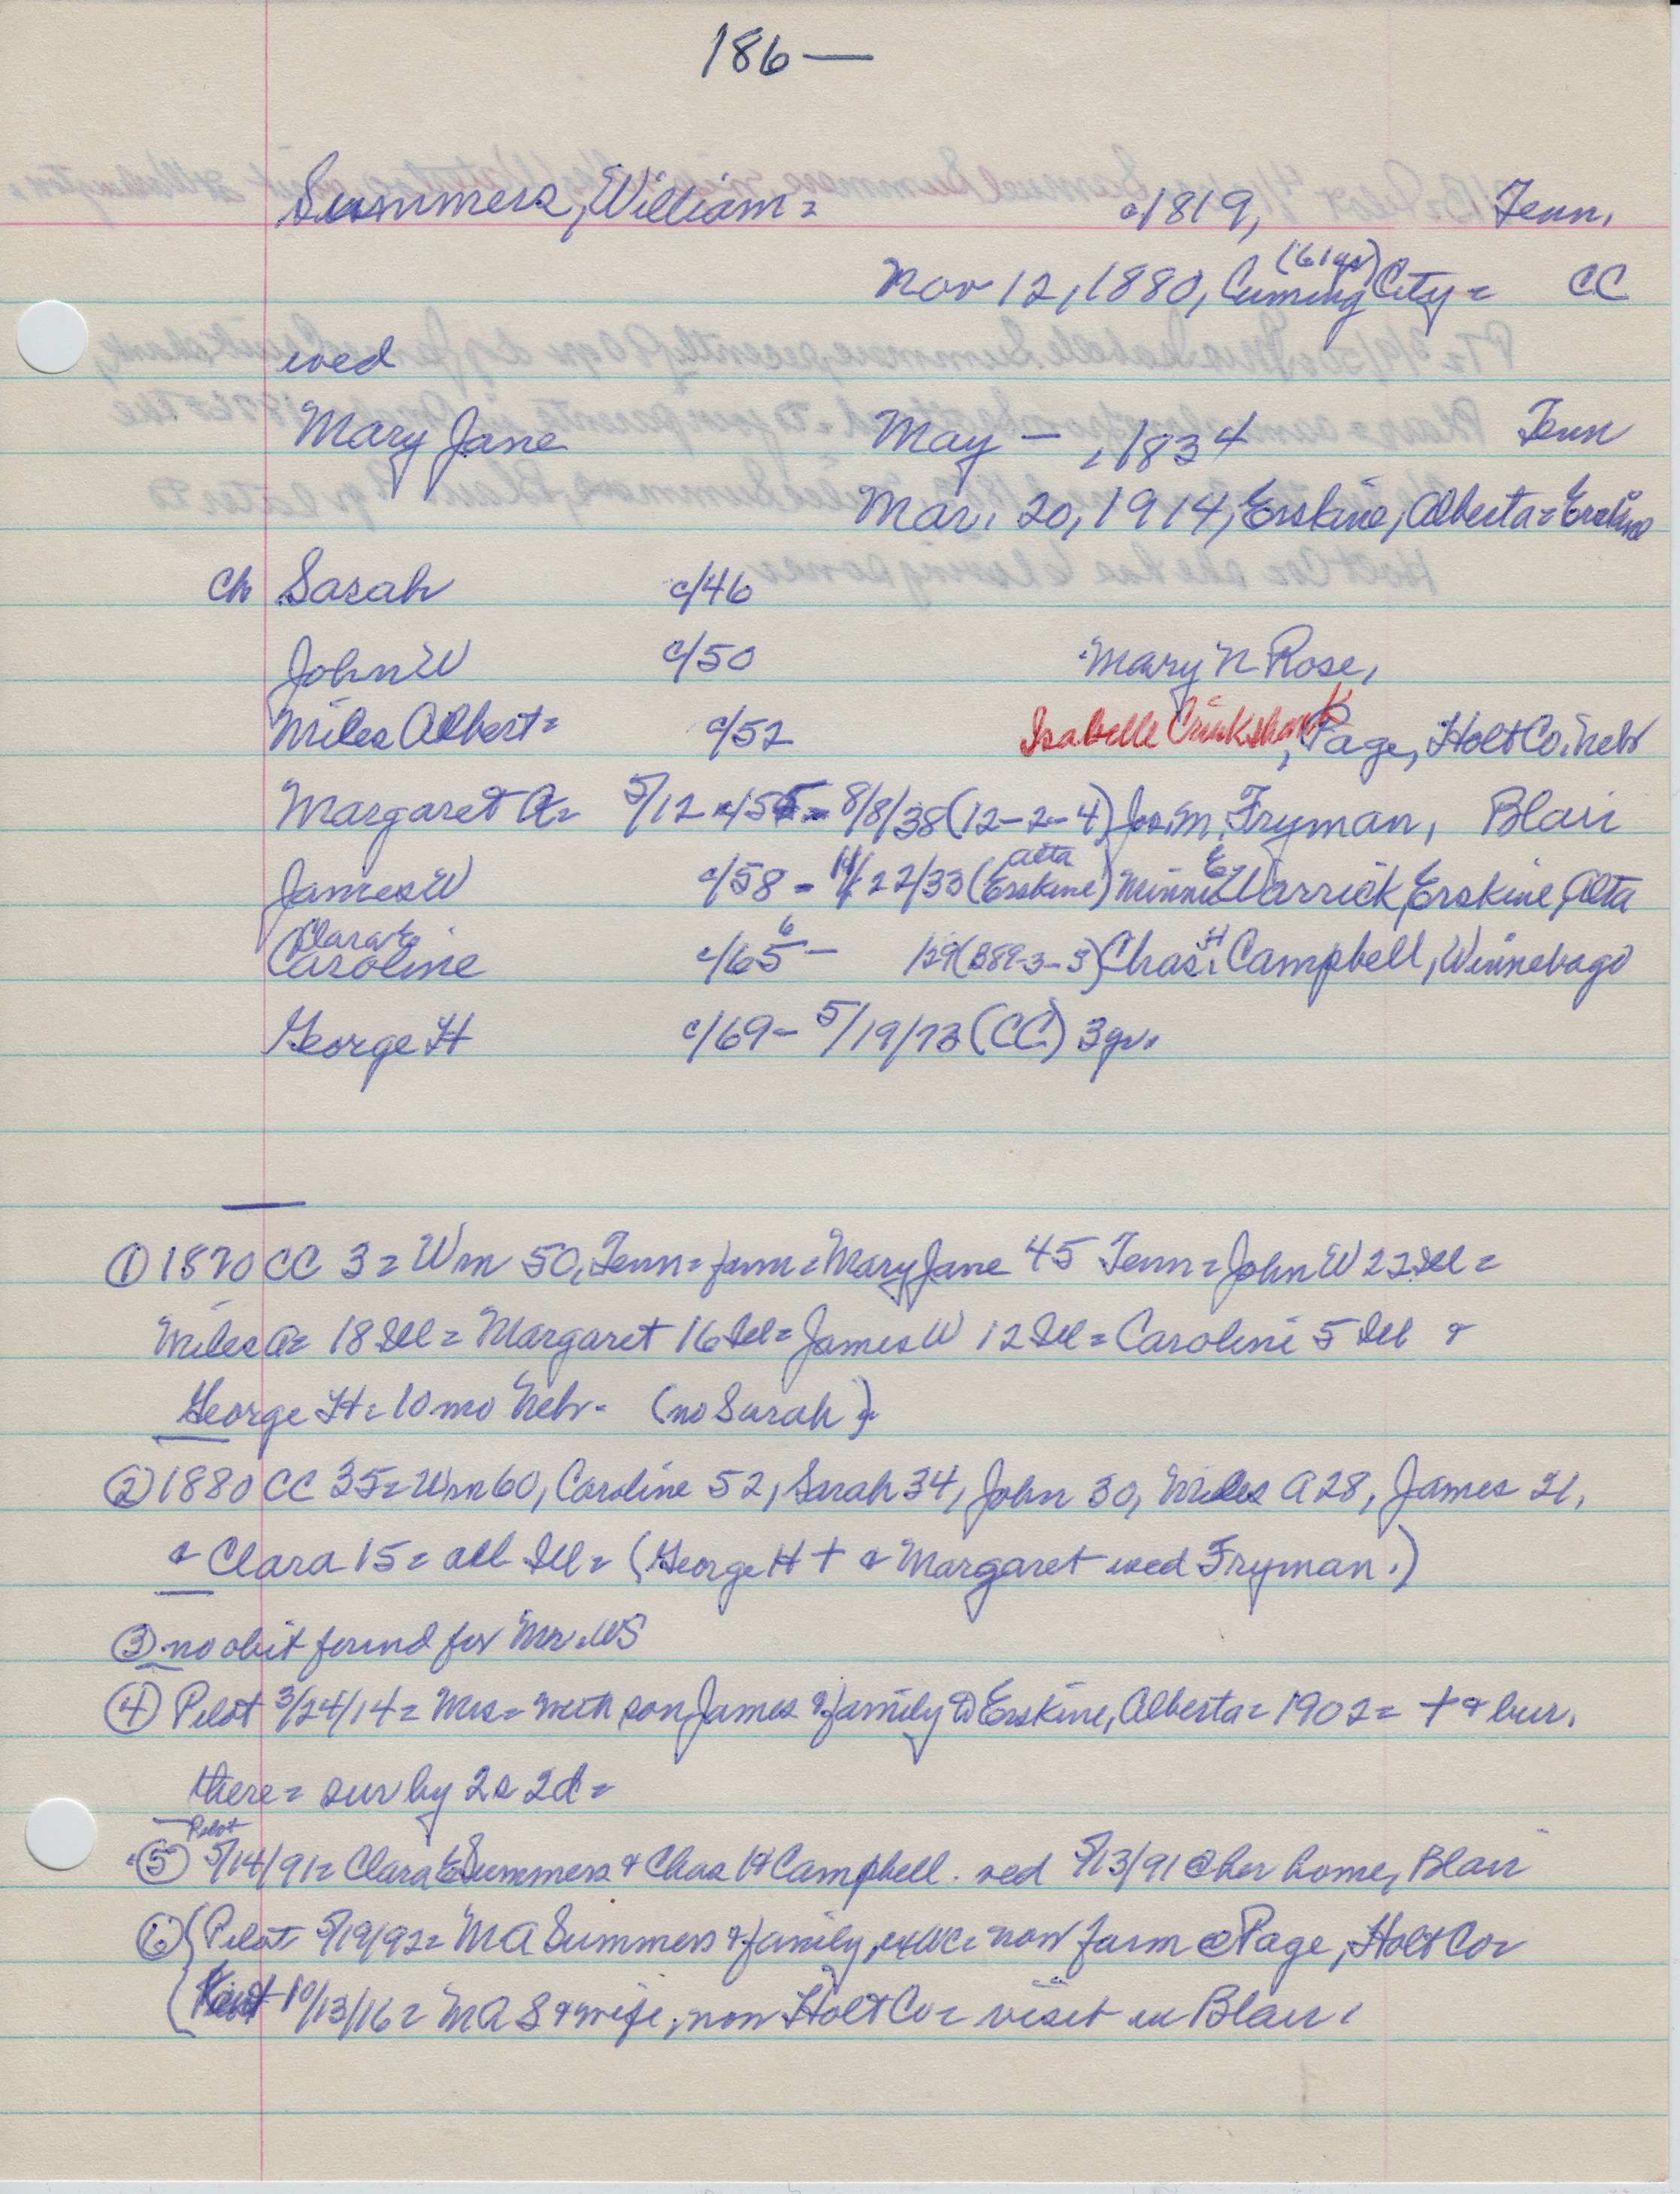 186—
Summers, William = c1819, Tenn.
(61 yr)
Nov 12, 1880, Cuming City = CC
wed
Mary Jane May — , 1834 Tenn
Mar. 20, 1914, Erskine, Alberta = Erskine
Ch Sarah c/46
John W c/50 Mary N Rose,
Miles Albert = c/52 Isabelle Cruikshank, Page, Holt Co. Nebr
Margaret A = 5/12 c/55 = 8/8/38 (12-2-4) Jos. M. Fryman, Blair
James W c/58 - 11/22/33 (Erskine Alta) Minnie E Warrick, Erskine, Alta
Clara E
Caroline c/65 6 - /29 (B89-3-3) Chas. H Campbell, Winnebago
George H c/69 - 5/19/73 (CC) 3 yr.
① 1870 CC 3 = Wm 50, Tenn = farm = Mary Jane 45 Tenn = John W 22 Ill =
Miles A = 18 Ill = Margaret 16 Ill = James W 12 Ill = Caroline 5 Ill &
George H = 10 mo Nebr. (no Sarah)
② 1880 CC 35 = Wm 60, Caroline 52, Sarah 34, John 30, Miles A 28, James 21,
& Clara 15 = all Ill = (George H + & Margaret wed Fryman.)
③ no obit found for Mr. WS
④ Pilot 3/24/14 = Mrs = with son James & family to Erskine, Alberta = 1902 = + & bur.
there = sur by 2s 2d =
Pilot
⑤ 5/14/91 = Clara E Summers & Chas H Campbell. wed 5/13/91 @ her home, Blair
⑥ Pilot 5/19/92 = M A Summers & family, ex WC = now farm @ Page, Holt Co =
10/13/16 = M A S & wife, now Holt Co = visit in Blair.